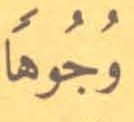 وُجُوهًا